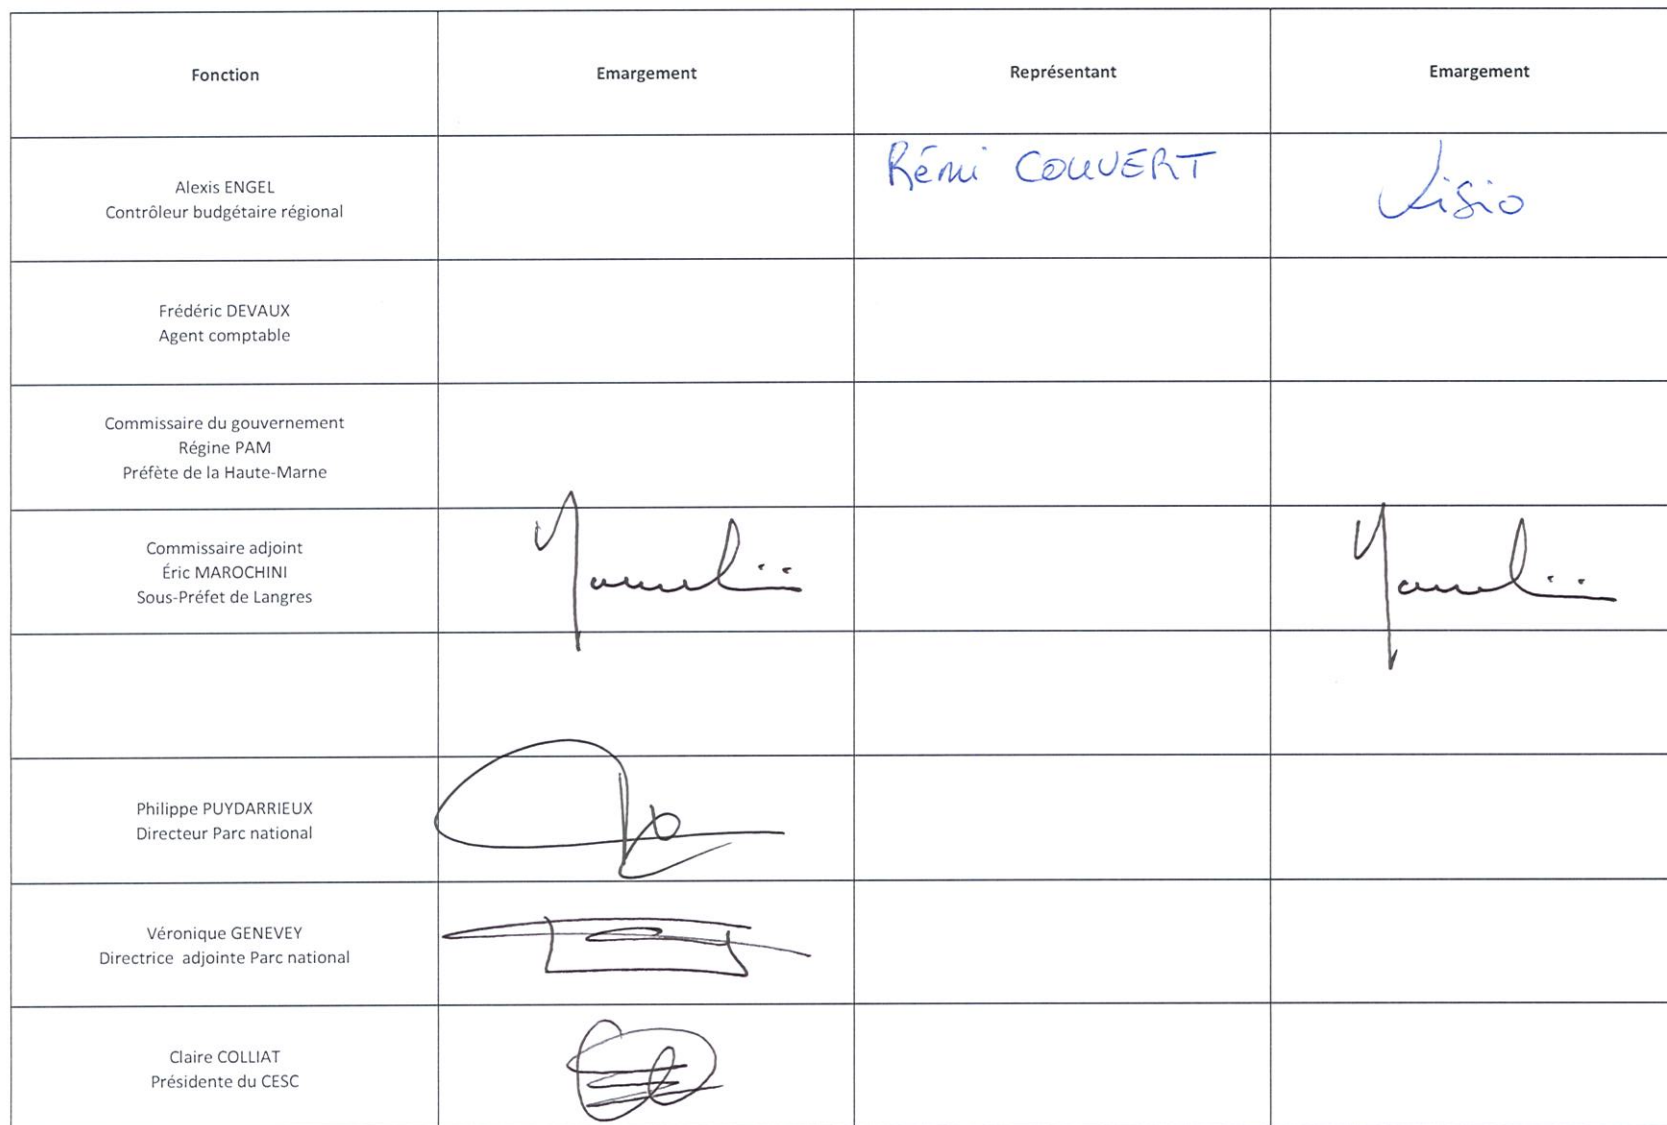 Fonction
Emargement
Représentant
Emargement
Alexis ENGEL
Contrôleur budgétaire régional
Rémi COUVERT
Visio
Frédéric DEVAUX
Agent comptable
Commissaire du gouvernement
Régine PAM
Préfète de la Haute-Marne
Commissaire adjoint
Éric MAROCHINI
Sous-Préfet de Langres
Philippe PUYDARRIEUX
Directeur Parc national
Véronique GENEVEY
Directrice adjointe Parc national
Claire COLLIAT
Présidente du CESC